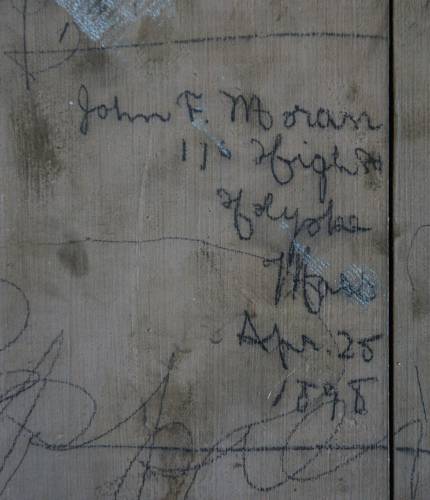 John F. Moran
110 High St
Holyoke
Mass
Apr. 25
1898